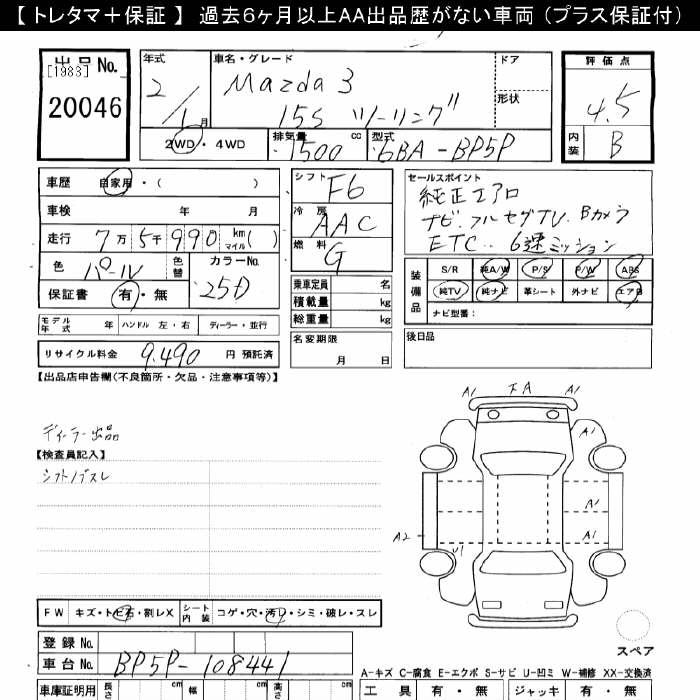 【 トレタマ＋保証 】 過去6ヶ月以上AA出品歴がない車両（プラス保証付）
出品No.
[1983]
20046
年式
2/1月
車名・グレード
Mazda3
15S ツーリング
ドア
形状
2WD・4WD
排気量 1500 cc
型式 6BA-BP5P
評価点
4.5
内装 B
車歴 自家用・( )
車検 年 月
走行 7万5千990 km マイル( )
色 パール 色替 カラーNo. 25D
保証書 有・無
モデル年式 年 ハンドル 左・右 ディーラー・並行
リサイクル料金 9,490 円 預託済
シフト F6
冷房 AAC
燃料 G
乗車定員 名
積載量 kg
総重量 kg
名変期限
月 日
セールスポイント
純正エアロ
ナビ.フルセグTV.Bカメラ
ETC.. 6速ミッション
装備品
S/R 純A/W P/S P/W ABS
純TV 純ナビ 革シート 外ナビ エアB
ナビ型番：
後日品
【出品店申告欄(不良箇所・欠品・注意事項等)】
ディーラー出品
【検査員記入】
シフトノブスレ
A1 下A A1
A1
A1
A2 A1
U1
A1
スペア
FW キズ・トビ石・割レX シート内装 コゲ・穴・汚レ・シミ・破レ・スレ
登録 No.
車台 No. BP5P-108441
A−キズ C−腐食 E−エクボ S−サビ U−凹ミ W−補修 XX−交換済
車庫証明用 長さ cm 幅 cm 高さ cm
工具 有・無 ジャッキ 有・無